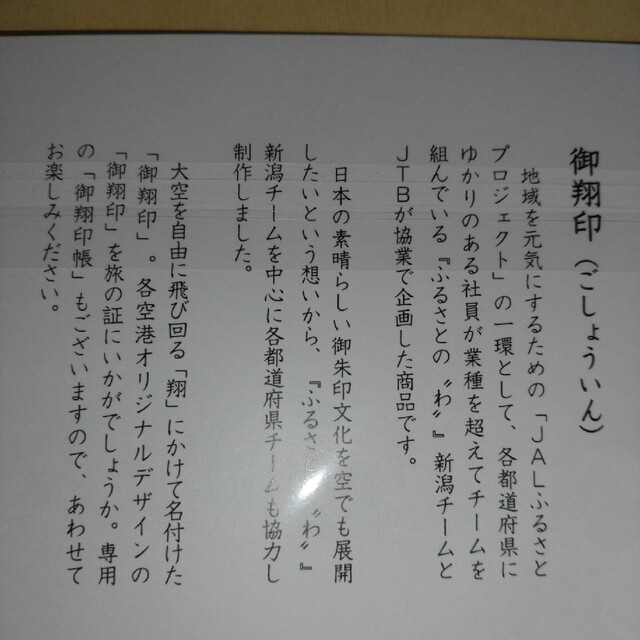 御翔印（ごしょういん）
地域を元気にするための「JALふるさと
プロジェクト」の一環として、各都道府県に
ゆかりのある社員が業種を超えてチームを
組んでいる『ふるさとの〝わ〟』新潟チームと
JTBが協業で企画した商品です。
日本の素晴らしい御朱印文化を空でも展開
したいという想いから、『ふるさとの〝わ〟』
新潟チームを中心に各都道府県チームも協力し
制作しました。
大空を自由に飛び回る「翔」にかけて名付けた
「御翔印」。各空港オリジナルデザインの
「御翔印」を旅の証にいかがでしょうか。専用
の「御翔印帳」もございますので、あわせて
お楽しみください。